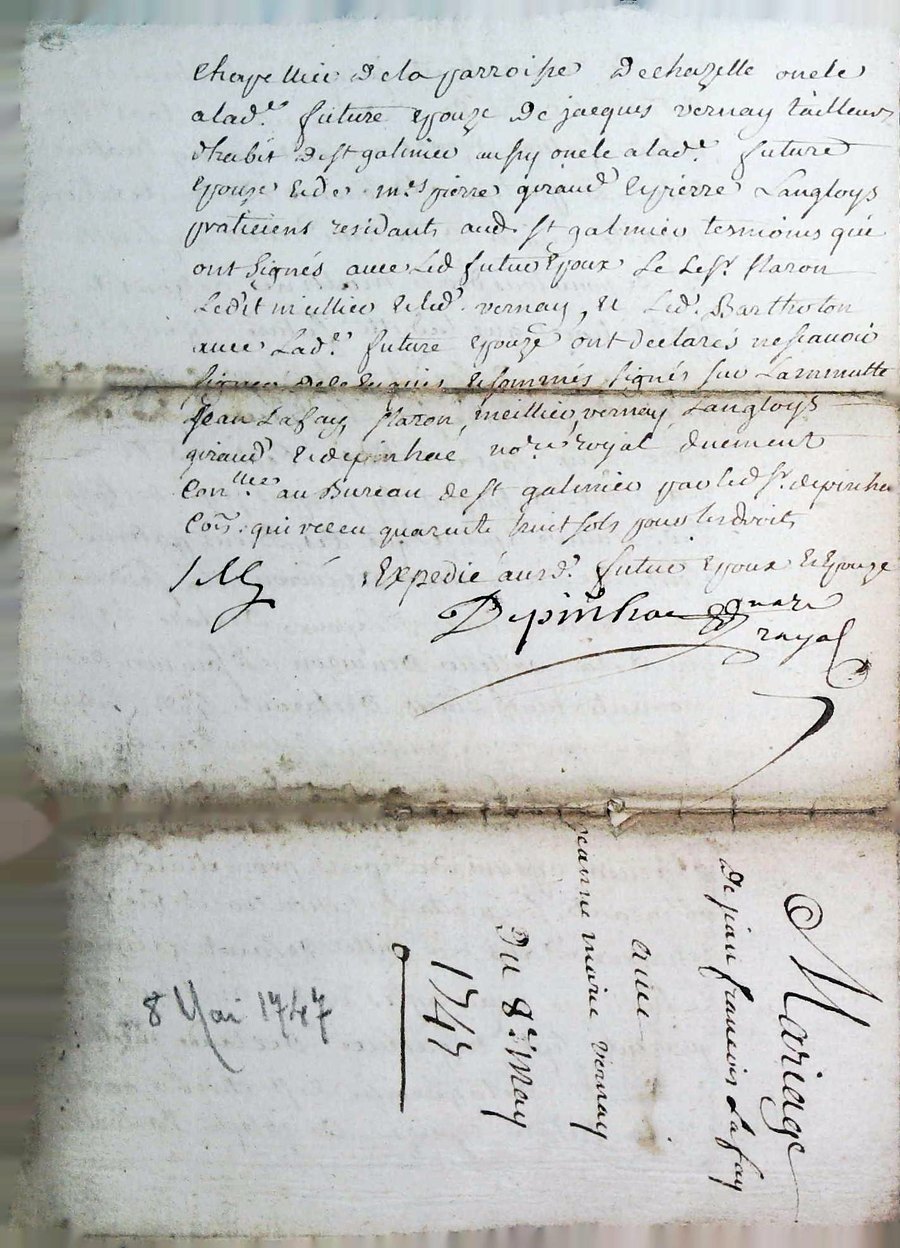 chapellier de la parroisse de chazelle oncle
a lad.e future epouze de jacques vernay tailleur
d'habit de st galmier aussy oncle a lad.e future
epouze et de m.es pierre giraud et pierre Langloys
praticiens residants aud. st galmier tesmoins qui
ont signés avec led futur epoux Le Sr. flaron
Ledit meillier et led. vernay, et led. Bartholon
avec Lad.e future epouze ont declarés ne scavoir
signer de ce enquis et sommés signés sur Laminutte
Jean Lafay flaron, meillier, vernay, Langloys
giraud. et depinhac, no.re royal duement
Con.llée au Bureau de st galmier par led sr. depinhac
Com: qui receu quarente huit sols pour les droits
Expedié ausd. futur epoux et epouze
Depinhac notaire
royal
Mariage
De jean francois Lafay
avec
jeanne marie vernay
Du 8e. may
1747
8 Mai 1747